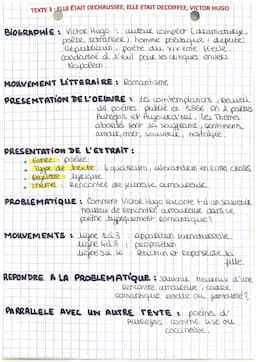 TEXTE 3 : ELLE ÉTAIT DECHAUSSEE, ELLE ETAIT DECOIFFEE, VICTOR HUGO
BIOGRAPHIE : Victor Hugo : auteur complet (dramaturge,
poète, romancier) homme politique, député
républicain, poète du XIXème siècle.
Condamné à l'exil pour les critiques envers
Napoléon.
MOUVEMENT LITTERAIRE : Romantisme
PRESENTATION DE L'OEUVRE : les contemplations, recueil
de poèmes publié en 1856 en 2 parties
Autrefois et Aujourd'hui. Les Thèmes
abordés sont la souffrance, sentiments,
amour, mort, souvenir, nostalgie.
PRESENTATION DE L'EXTRAIT :
Genre : poésie
Type de texte : 4 quatrains, alexandrin en rime croisés
Registre : lyrique
Thème : Rencontre de jeunesse, amoureuse.
PROBLEMATIQUE : Comment Victor Hugo raconte t-il un souvenir
heureux de rencontre amoureuse dans ce
poème typiquement romantique?
MOUVEMENTS : ligne 1 à 3 : apparition surnaturelle
ligne 4 à 8 : proposition
ligne 9 à 16 : Réaction et réponse de la
fille
REPONDRE A LA PROBLEMATIQUE : souvenir heureux d'une
rencontre amoureuse, cadre
romantique réelle ou fantaisie?
PARRALLELE AVEC UN AUTRE TEXTE : poèmes d'
Autrefois comme Lise ou
coccinelle.